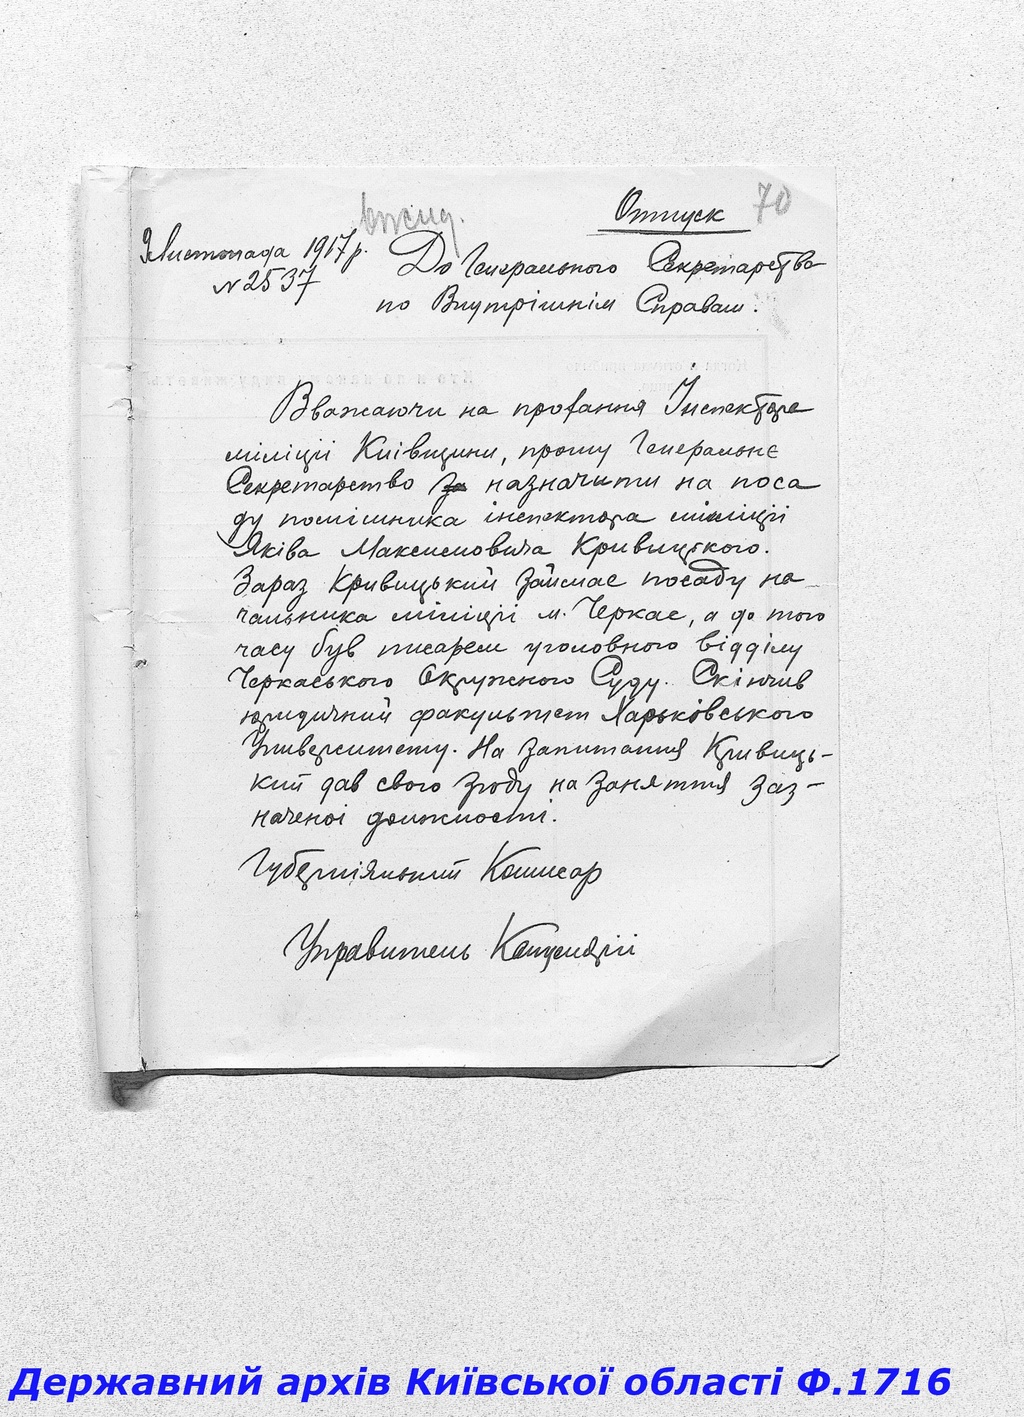 Отпуск 70
Листопада 1917 р.
До Генерального Секретарства
№ 2537
по Внутрішнім Справам.
Вважаючи на прохання Інспектора
міліціі Киівщини, прошу Генеральнє
Секретарство за назначити на поса
ду помішника інспектора міліціі
Яківа Максимовича Кривицького.
Зараз Кривицький займає посаду на
чальника міліціі м. Черкас, а до того
часу був писарем уголовного відділу
Черкаського Окружного Суду. Скінчив
юридичний факультет Харьківського
Университету. На запитання Кривиць-
кий дав свою згоду на заняття заз-
наченоі должности.
Губерніяльний Комисар
Управитель Канцеляріі
Державний архів Київської області Ф.1716